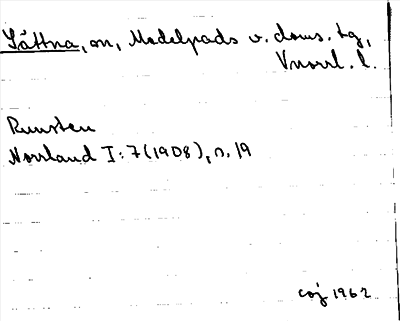 Sättna, sn, Medelpads v. doms. tg,
Vnorrl. l.
Runsten
Norrland I: 7 (1908), s. 19
coj 1962